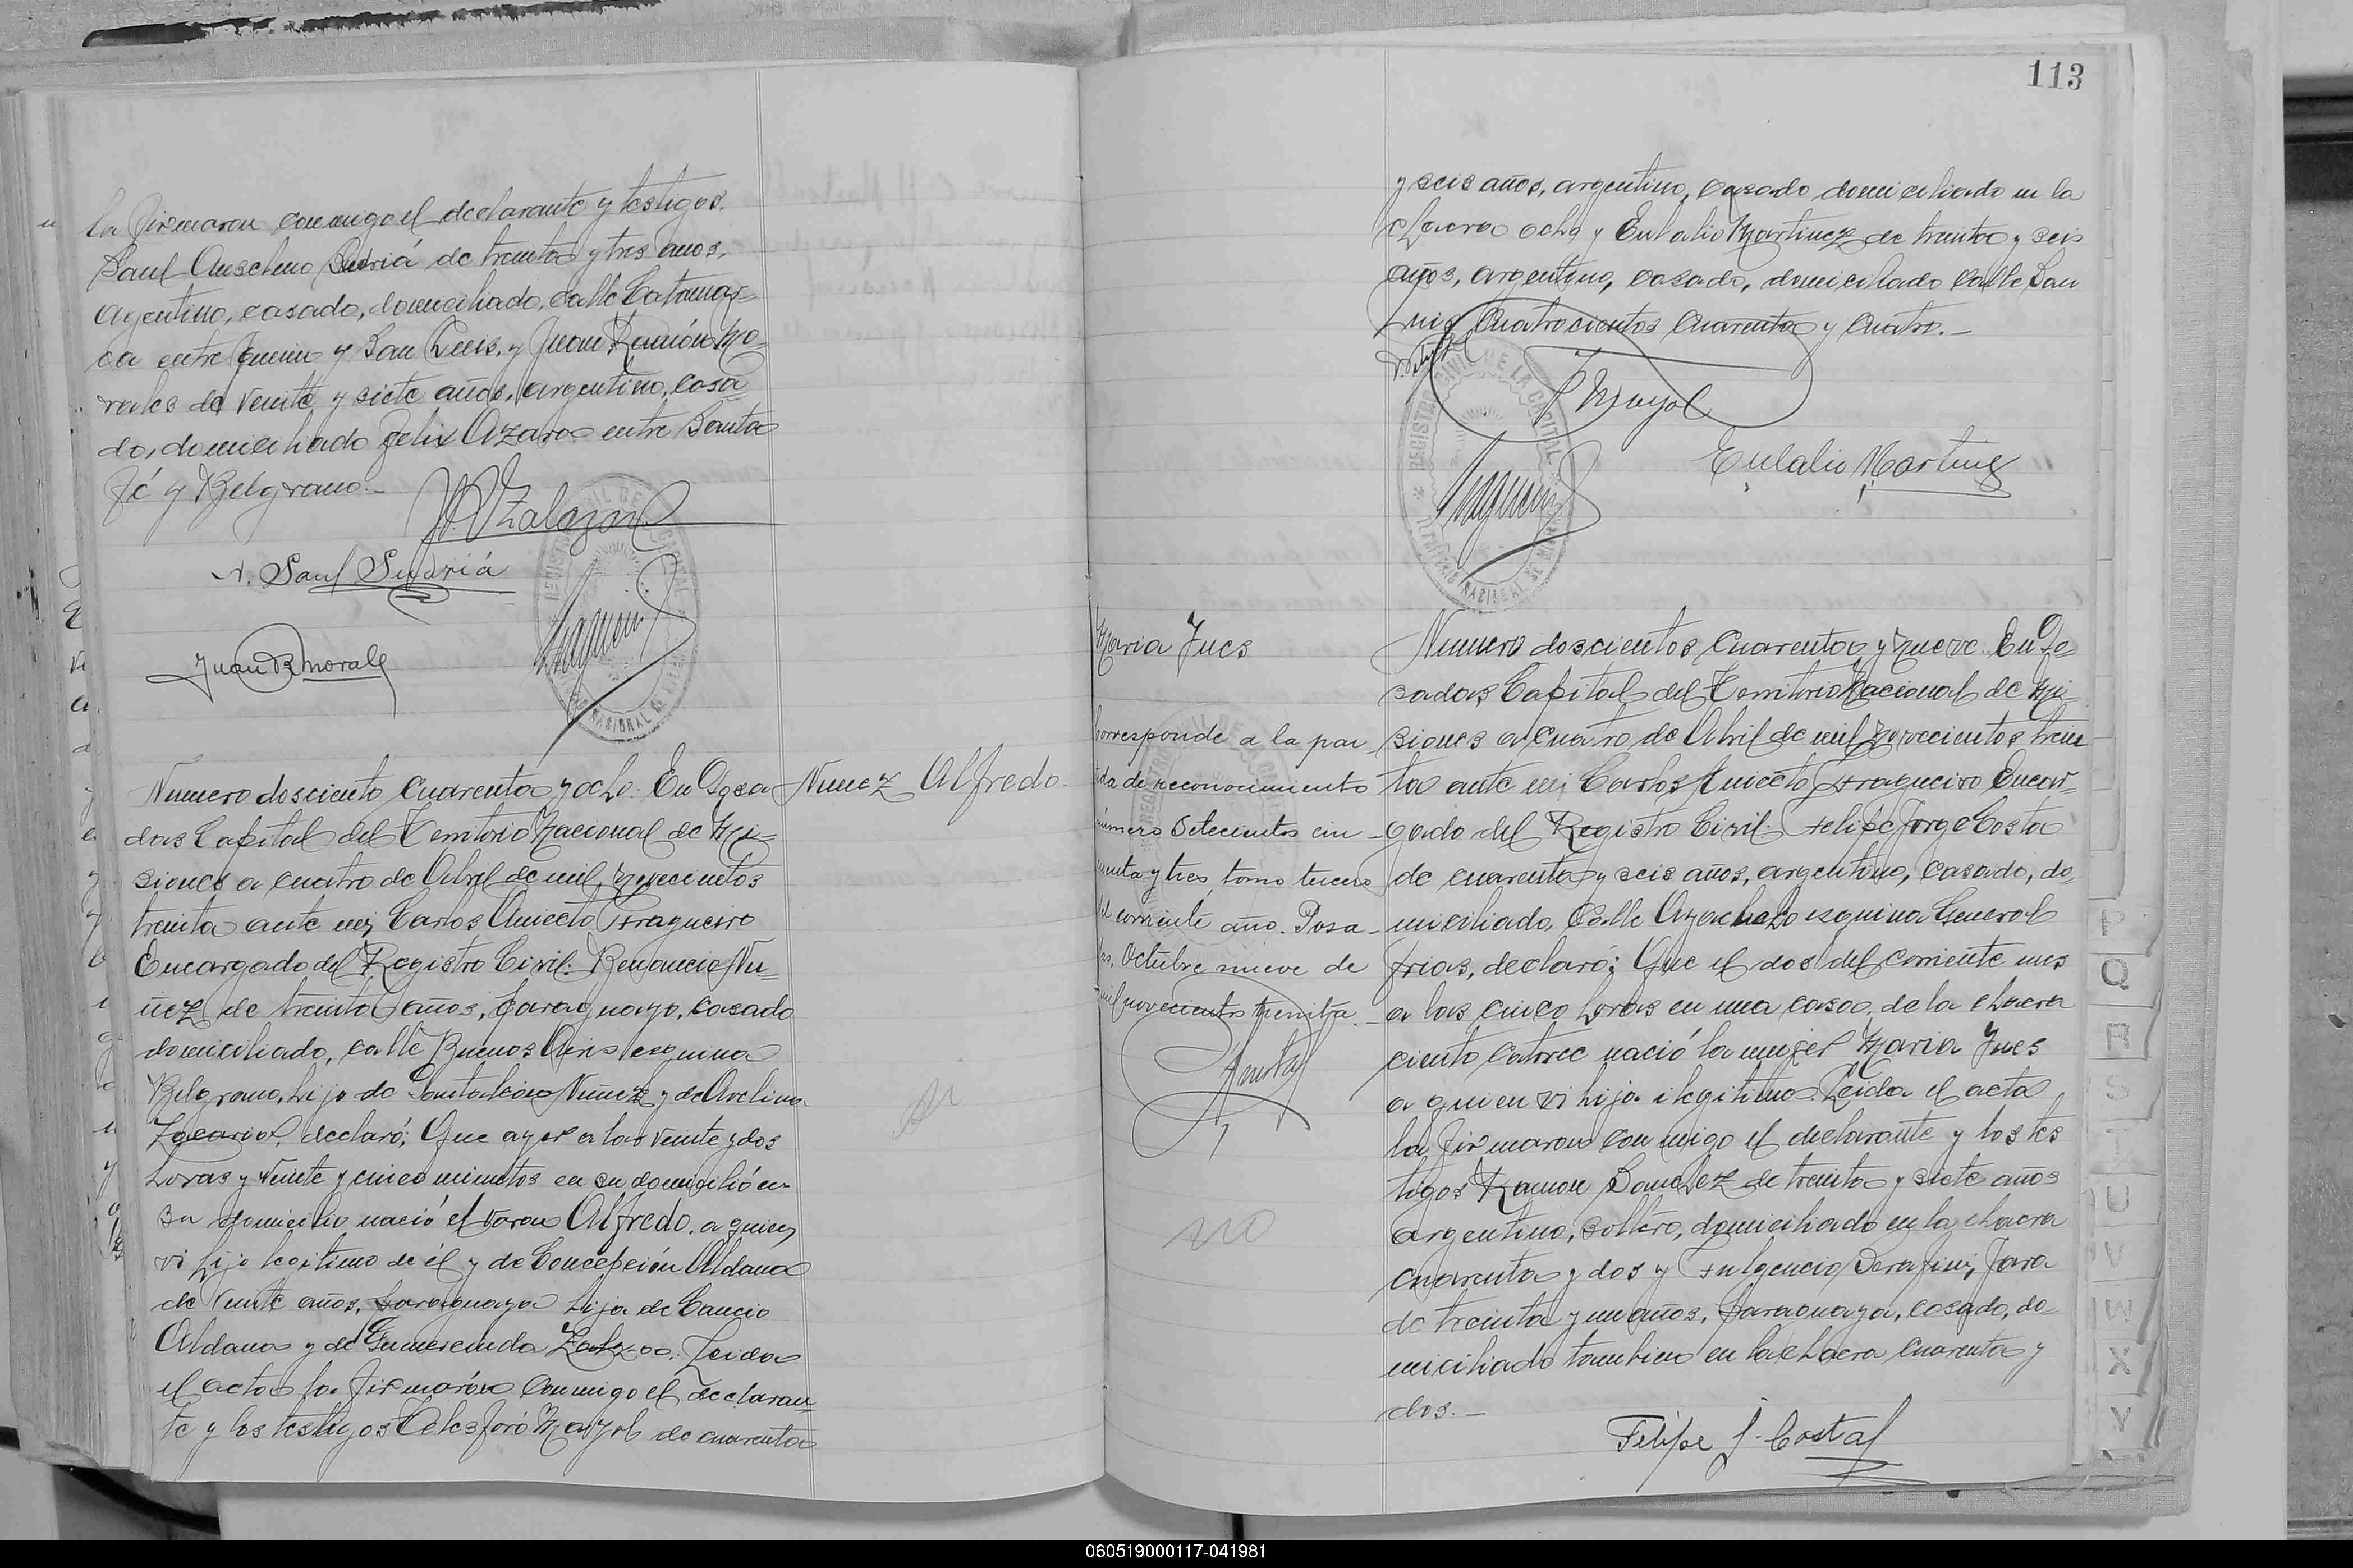 la firmaron conmigo el declarante y testigos.
Saul Anselmo Sudriá de treinta y tres años,
argentino, casado, domiciliado, calle Catamar=
ca entre Junin y San Luis, y Juan Ramón Mo=
rales de veinte y siete años, argentino, casa=
do, domiciliado Felix Azara entre Santa
Fé y Belgrano.-
A. Saul Sudriá
Juan R Morale
Numero dosciento cuarenta y ocho. En Posa
das Capital del Territorio Nacional de Mi=
siones a cuatro de Abril de mil novecientos
treinta ante mi, Carlos Aniceto Fragueiro
Encargado del Registro Civil: Benancio Nu=
ñez de treinta años, paraguayo, casado
domiciliado, calle Buenos Aires esquina
Belgrano, hijo de Nuñez y de Avelina
declaró: Que ayer a las veinte y dos
horas y veinte y cinco minutos en su domicilio en
su domicilio nació el varon Alfredo, a quien
vi hijo legitimo de él y de Concepción Aldana
de veinte años, paraguaya hija de Cancio
Aldana y de Gumercinda Leida
el acta la firmarón conmigo el declaran=
te y los testigos Telesforo Mayol de cuarenta
Nunez Alfredo
si
113
y seis años, argentino, casado domiciliado en la
chacra ocho y Eulalio Martinez de treinta y seis
años, argentino, casado, domiciliado calle San
Luis Cuatrocientos Cuarenta y Cuatro.-
T Mayol
Eulalio Martinez
REGISTRO CIVIL DE LA CAPITAL
Maria Ines
Corresponde a la par
tida de reconocimiento
número Setecientos cin-
cuenta y tres tomo tercero
del corriente año. Posa-
das, Octubre nueve de
mil novecientos treinta.-
no
Numero doscientos Cuarenta y nueve. En Po=
sadas Capital del Territorio Nacional de Mi=
siones a cuatro de Abril de mil novecientos trein
ta ante mi Carlos Aniceto Fragueiro Encar=
gado del Registro Civil: Felipe Jorge Costa
de cuarenta y seis años, argentino, casado, do=
miciliado, Calle Ayacucho esquina General
Frias, declaró: Que el dos del corriente mes
a las cinco horas en una casa de la chacra
ciento catorce nació la mujer Maria Ines
a quien vi hija ilegitima. Leida el acta
la firmaron conmigo el declarante y los tes
tigos Ramon Sanchez de treinta y siete años
argentino, soltero, domiciliado en la chacra
cuarenta y dos y Fulgencio Serafin Jara
de treinta y un años, paraguayo, casado, do=
miciliado tambien en la chacra cuarenta y
dos.-
Felipe J. Costa
P
Q
R
S
T
U
V
W
X
Y
060519000117-041981